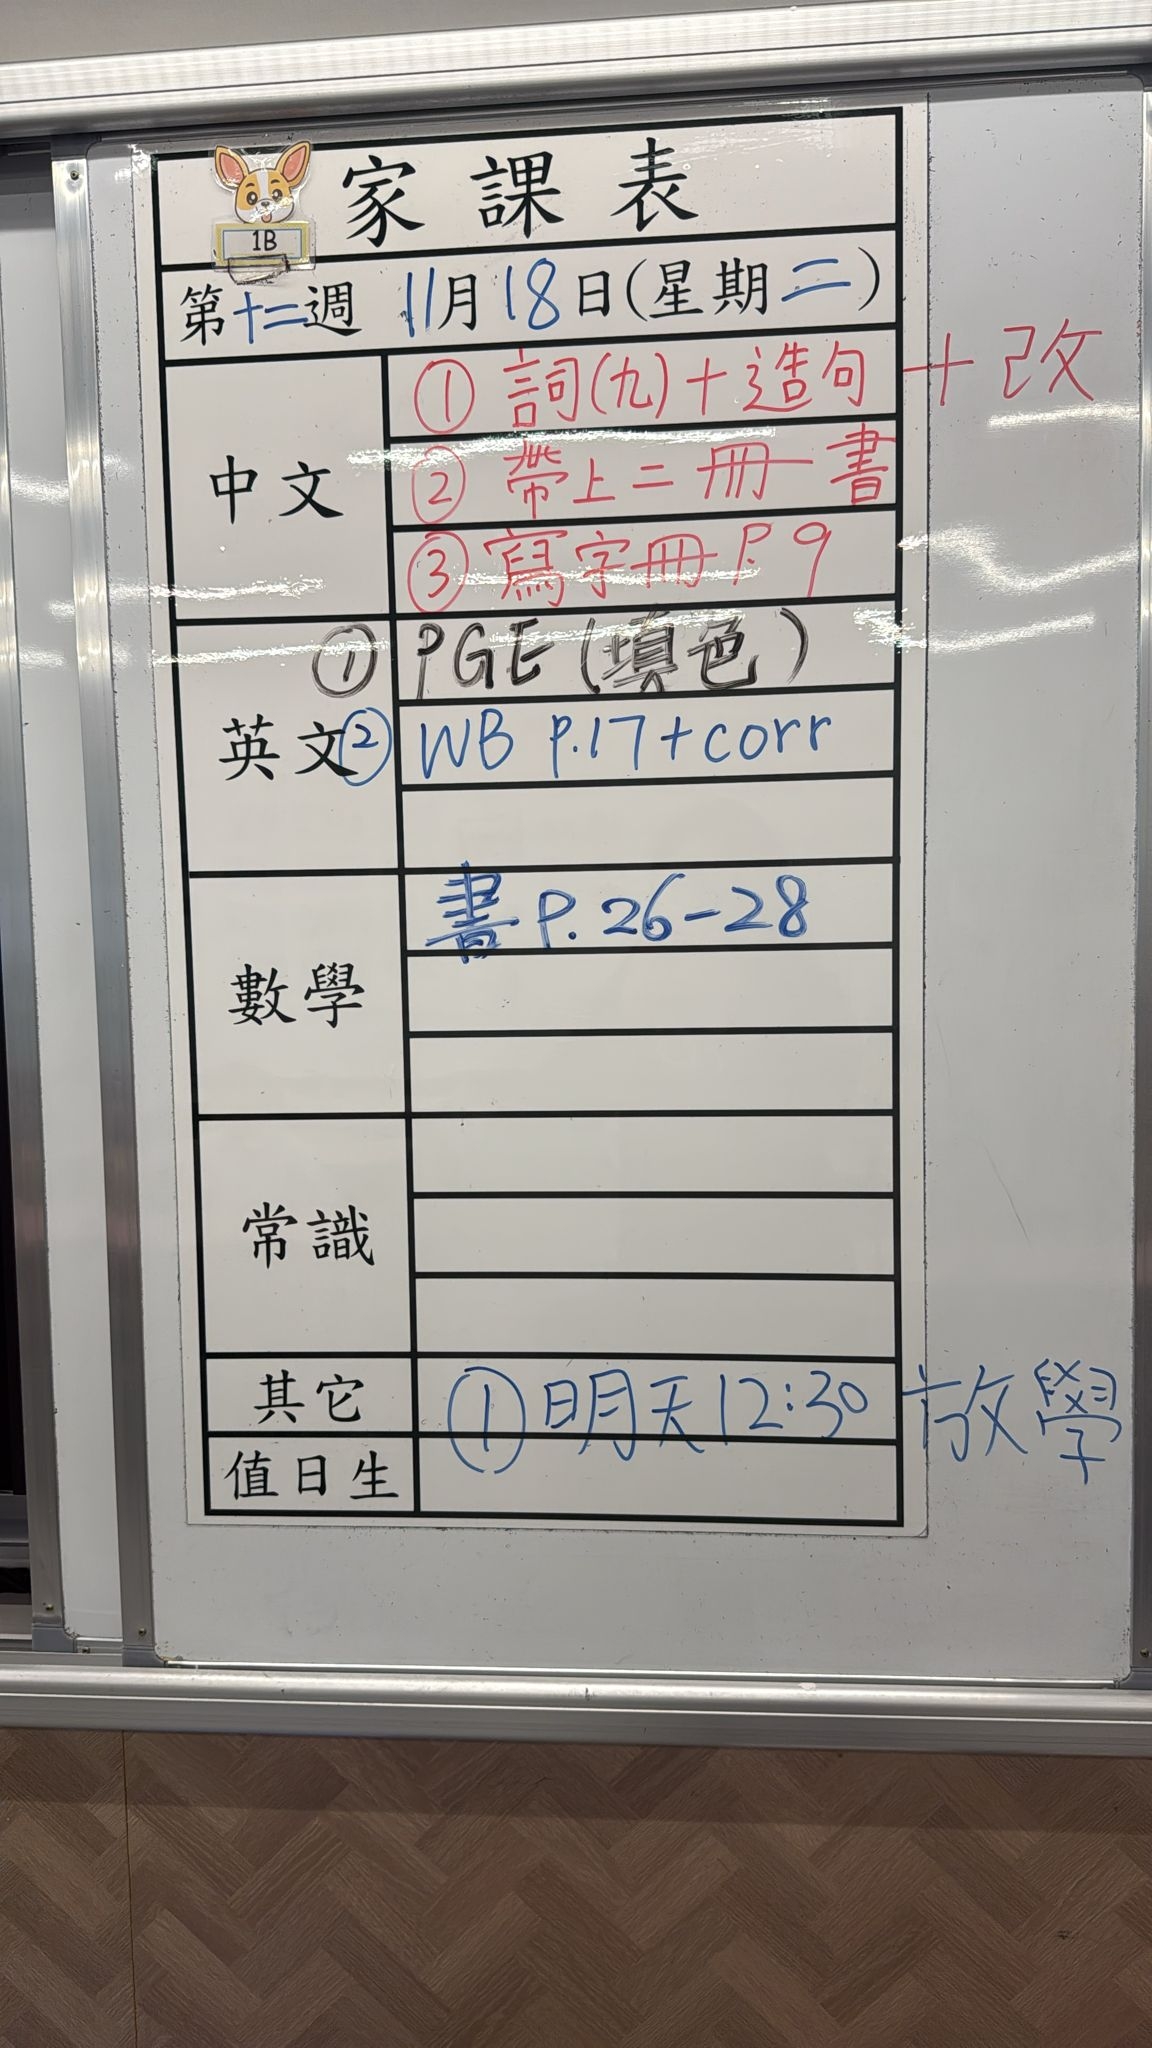 家課表
1B
第十二週 11月18日(星期二)
中文
① 詞(九)+造句+改
② 帶上二冊書
③ 寫字冊 P.9
英文
① PGE(填色)
② WB P.17+corr
數學
書 P.26-28
常識
其它
① 明天12:30放學
值日生